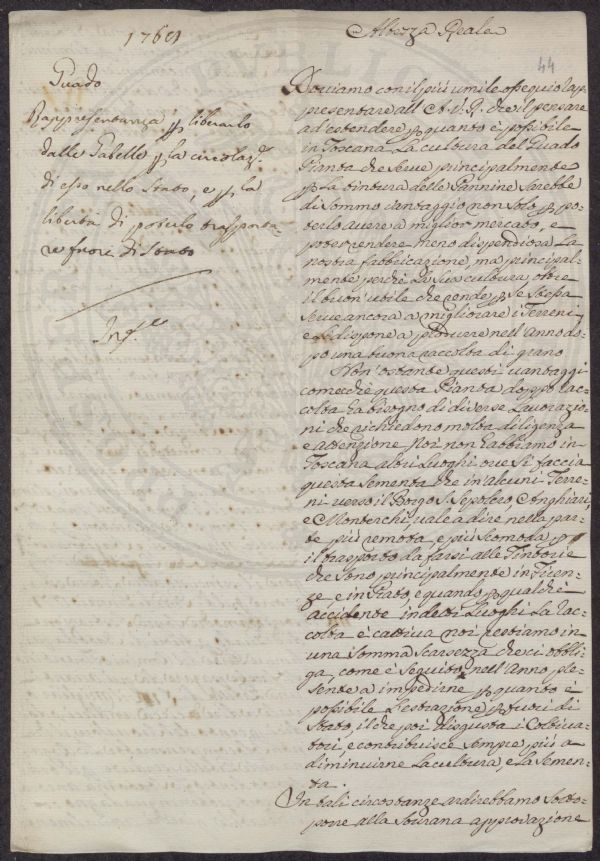 1769
Guado
Rappresentanza p liberarlo
dalle Gabelle p la circolaz.e
di esso nello Stato, e p la
libertà di poterlo trasporta-
re fuori di Stato
Altezza Reale
44
Doviamo con il più umile ossequio rap-
presentare all'A.V.R. che il pensare
ad'estendere p quanto è possibile
in Toscana La cultura del Guado
Pianta che serve principalmente
p La tintura delle Pannine sarebbe
di sommo vantaggio non solo p po-
terlo avere a miglior mercato, e
poter rendere meno dispendiosa La
nostra fabbricazione, ma principal-
mente perché La sua cultura oltre
il buon'utile che rende p se stessa
serve ancora a migliorare i Terreni
e Li dispone a produrre nell'Anno do-
po una buona raccolta di grano
Non'ostante questi vantaggi
comecche questa Pianta doppo rac-
colta ha bisogno di diverse Lavorazio-
ni che richiedono molta diligenza
e attenzione Noi non habbiamo in
Toscana altri Luoghi ove si faccia
questa sementa che in'alcuni Terre-
ni verso il Borgo S. Sepolcro, Anghiari,
e Monterchi, vale a dire nella par-
te più remota e più scomoda p
il trasporto da farsi alle Tintorie
che sono principalmente in Firen-
ze e in Prato, e quando p qualche
accidente in detti Luoghi La rac-
colta è cattiva noi restiamo in
una somma scarsezza che ci obbli-
ga, come è seguito nell'Anno pre-
sente a impedirne p quanto è
possibile L'estrazione p fuori di
Stato, il che poi disgusta i Coltiva-
tori, e contribuisce sempre più a
diminuirne La cultura, e La semen-
ta.
In tali circostanze ardirebbamo sotto-
porre alla Sovrana approvazione